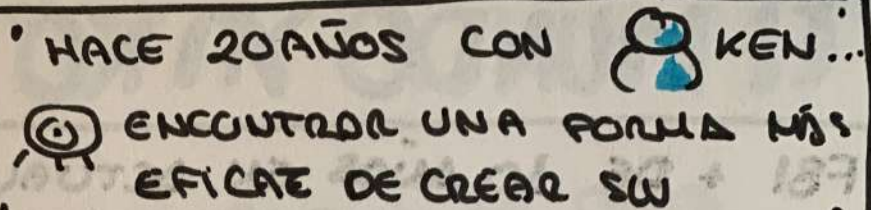 • HACE 20 AÑOS CON KEN...
ENCONTRAR UNA FORMA MÁS
EFICAZ DE CREAR SW